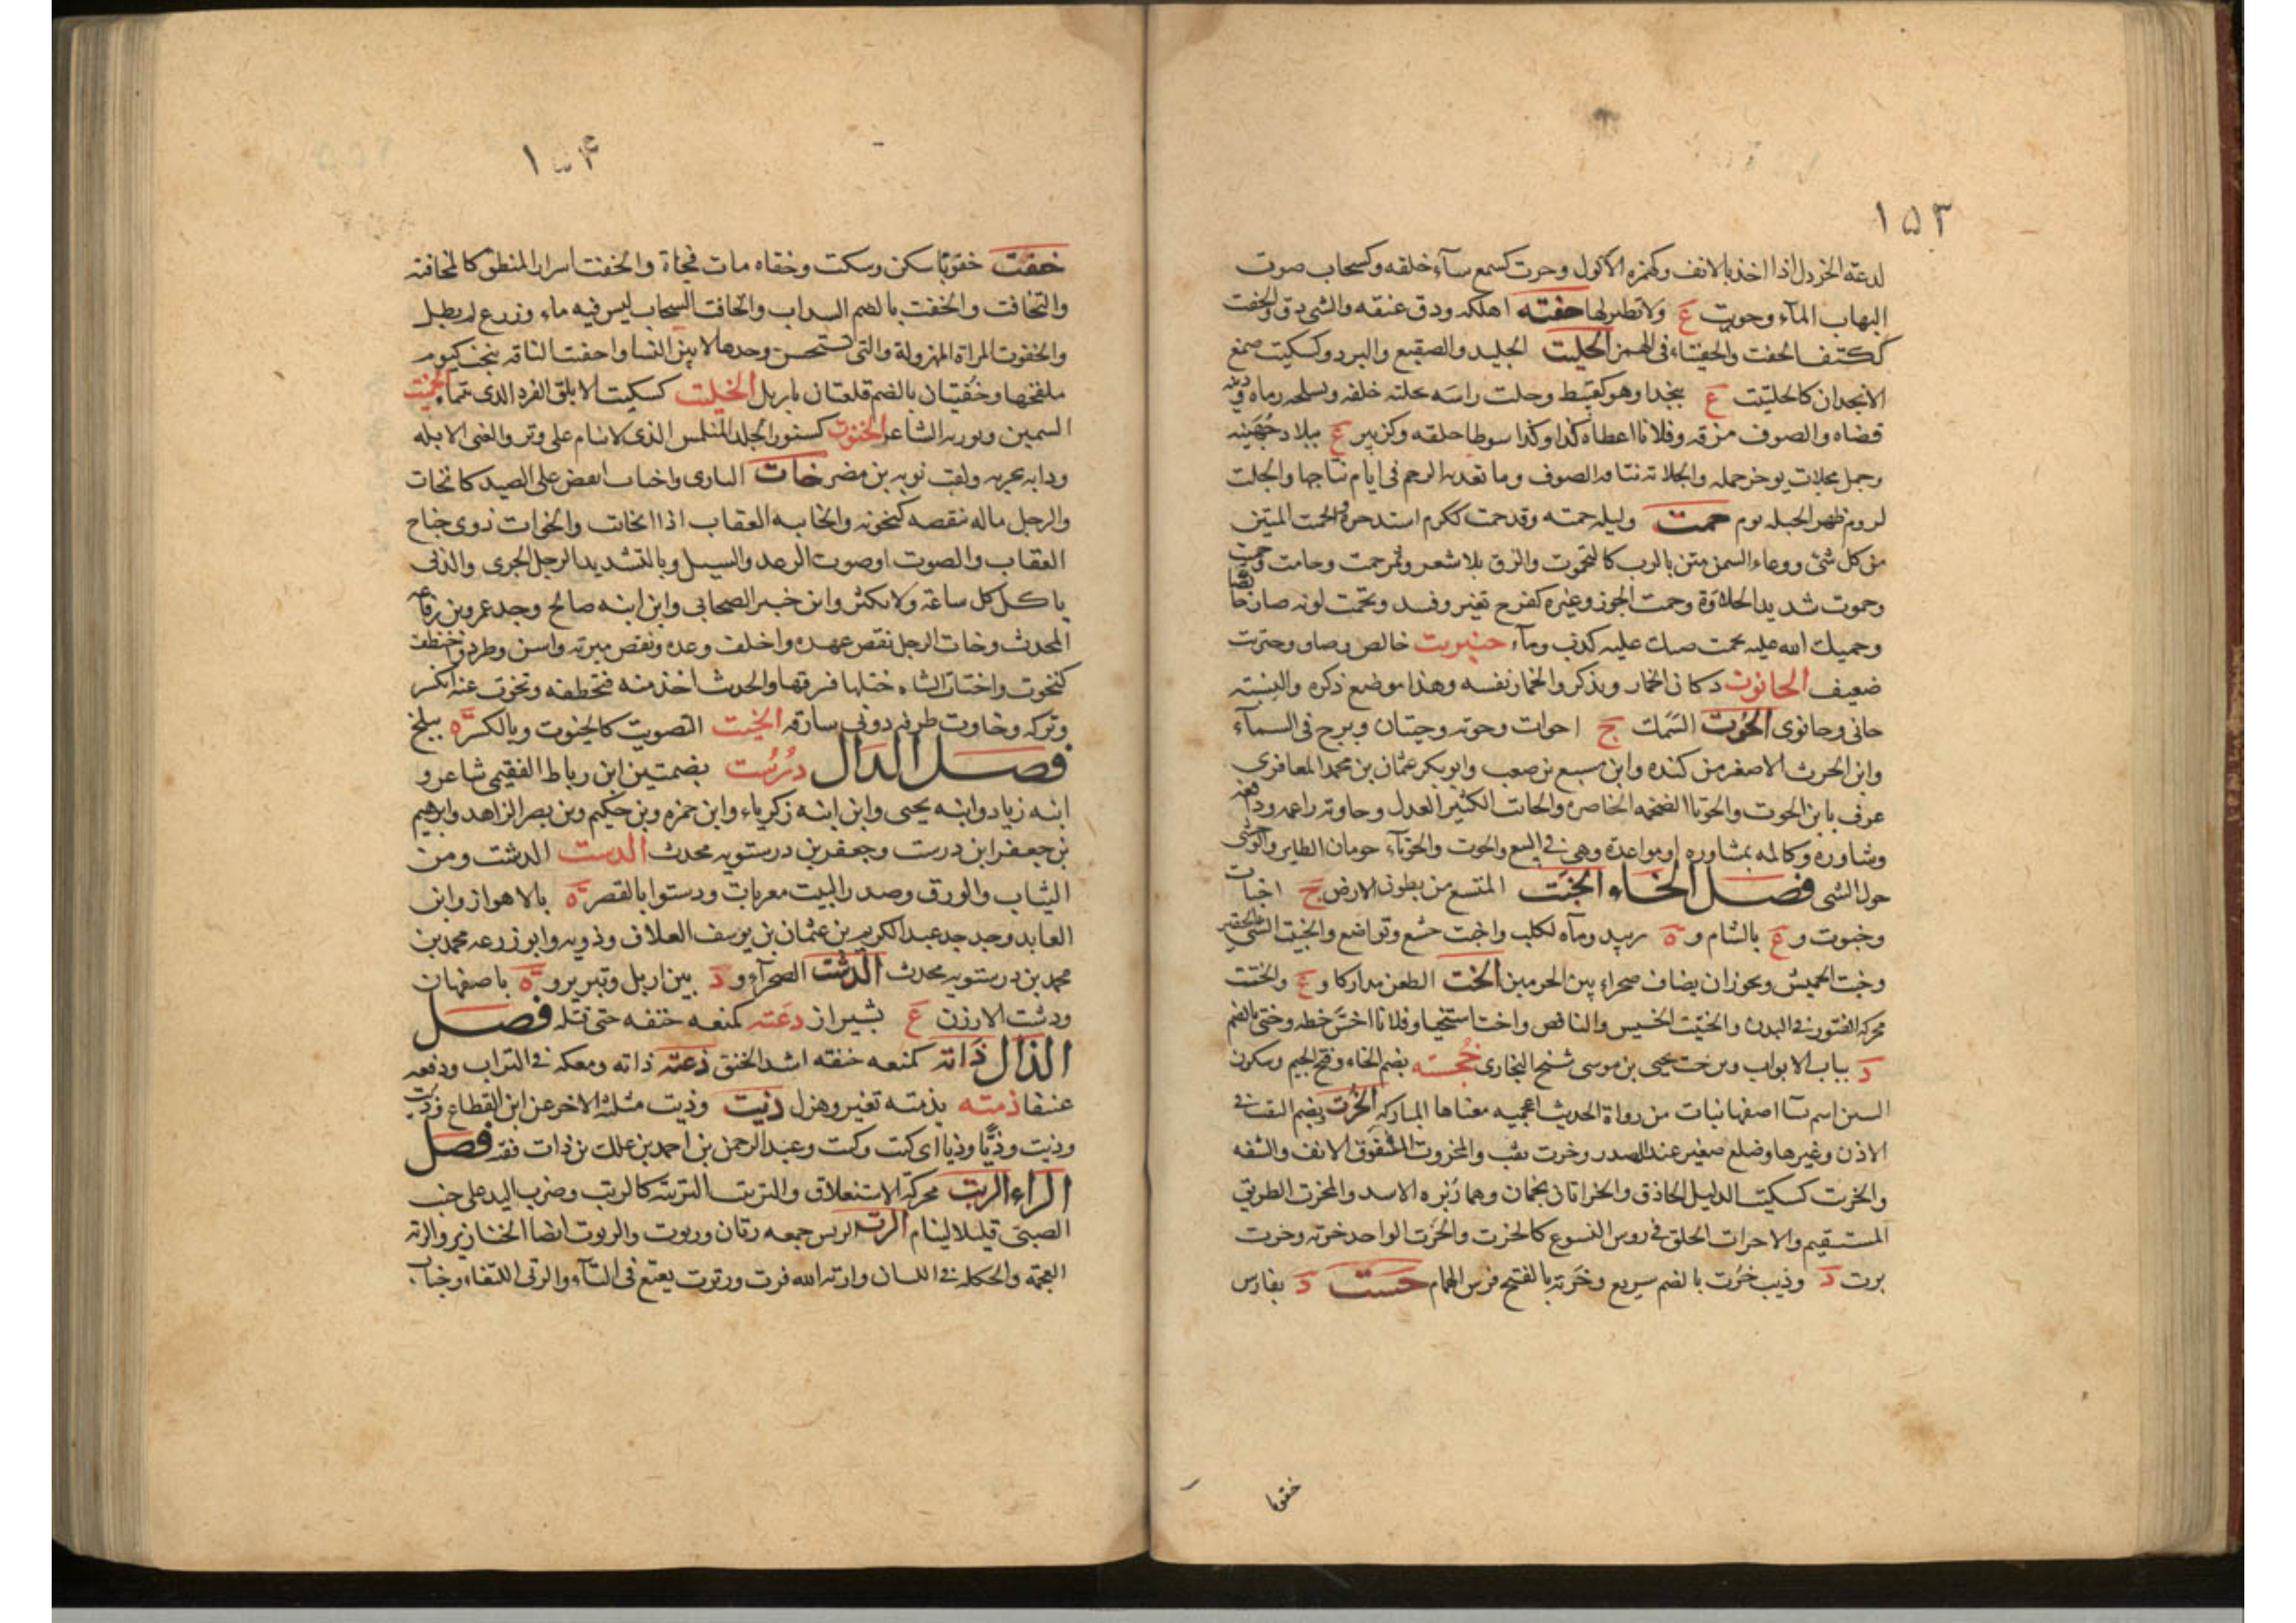 ١٥٣
لدعة الخردل اذا اخذ بالانف وكهمزه الاكول وحرت كسمع سآء خلقه وكسحاب صوت
التهاب المآء وحوريت ع ولا نظير لها حفته اهلكه ودق عنقه والشى دقه والحفت
ككتف الحفث والحفتاء فى الهمز الحليت الجليد والصقيع والبرد وكسكيت صمغ
الانجدان كالحلتيت ع بنجد او هو كقبيط وحلت راسه حلته خلقه وبسلحه رماه ودينه
قضاه والصوف مزقه وفلانا اعطاه كذا وكذا سوطا حلقه وكزبير ع ببلاد جهينه
وجمل محلات يوخر حمله والحلاته نتافه الصوف وما تقذفه الرحم فى ايام نتاجها والحلت
لزوم ظهر الخيله يوم حمت وليله حمته وقد حمت ككرم اشتد حره والحمت المتين
من كل شئ ووعاء السمن متن بالرب كالتحموت والزق بلا شعر وتمر حمت وحامت وحميت
وحموت شديد الحلاوة وحمت الجوز وغيره كفرح تغير وفسد وتحمت لونه صار خالصا
وحميك الله عليه يحمت صبك عليه كذب ومآء حنبريت خالص وصاو وحتريت
ضعيف الحانوت دكان الخمار ويذكر والخمار نفسه وهذا موضع ذكره والنسبته
حانى وحانوى الحوت السمك ج احوات وحوته وحيتان وبرج فى السمآء
وابن الحرث الاصغر من كنده وابن سبع بن صعب وابو بكر عثمان بن محمد المعافرى
عرف بابن الحوت والحوتا الضخمه الخاصره والحات الكثير العدل وحاوته راعمه ودافعه
وشاوره وكالمه بمشاوره او بمواعدة وهى فى البيع والحوت والحوتآء حومان الطاير والوحشى
حول الشى فصل الخاء الخبت المتسع من بطون الارض ج اخبات
وخبوت و ع بالشام و ة بزبيد ومآء لكلب واخبت خشع وتواضع والخبيت الشى الحقير
وخبت الجميش ويجوز ان يضاف صحراء بين الحرمين الخت الطعن مداركا و ع والختت
محركة الفتور فى البدن والختيت الخسيس والناقص واخت استحيا وفلانا اخس خطه وختى بالضم
د بباب الابواب وبن خت يحيى بن موسى شيخ البخارى خجسته بضم الخاء وفتح الجيم وسكون
السين اسم نسآ اصفهانيات من رواة الحديث اعجميه معناها المباركة الخرت بضم الثقب فى
الاذن وغيرها وضلع صغير عند الصدر وخرت ثقب والمخروت المشقوق الانف والشفه
والخريت كسكيت الدليل الحاذق والخراتان نجمان وهما زبره الاسد والمخرت الطريق
المستقيم والاخرات الحلق فى روس النسوع كالخرت والخرت الواحد خرته وخرت
برت د وذيب خرت بالضم سريع وخرته بالفتح فرس الهمام خست د بفارس
خفوتا
١٥٤
خفت خفوتا سكن وسكت وخفاه مات فجاة والخفت اسرار المنطق كالمخافته
والتخافت والخفت بالضم السداب والخافت السحاب ليس فيه ماء وزرع لم يطل
والخفوت المراة المهزولة والتى تستحسن وحدها لا بين النسا واخفتت الناقه نتجت كيوم
ملقحها وخفتيان بالضم قلعتان باربل الخليت كسكيت الابلق الفرد الذى بتيماء الخنيت
السمين وبوريه الشاعر الخنوت كسنور الجلد المنكمس الذى لا ينام على وتر والغبى الابله
ودابه بحريه ولقب توبه بن مضرس خات البازى واختات انقض على الصيد كانخات
والرجل ماله تنقصه كتخونه والخايته العقاب اذا انخات والخوات دوى جناح
العقاب والصوت او صوت الرعد والسيل وبالتشديد الرجل الجرى والذى
ياكل كل ساعة ولا يكثر وابن جبير الصحابى وابن ابنه صالح وجد عمرو بن رفاعه
المحدث وخات الرجل نقص عهده واخلف وعده ونقص ميرته واسن وطرد وخطف
كتخوت واختات الشاه ختلها فسرقها والحديث اخذ منه فتخطفه وتخوت عنه انكسر
وتركه وخاوت طرفه دونى سارقه الخيت التصويت كالخيوت وبالكسر ة ببلخ
فصل الدال درست بضمتين ابن رباط الفقيمى شاعر و
ابنه زياد وابنه يحيى وابن ابنه زكرياء وابن حمزه وبن حكيم وبن نصر الزاهد وابرهيم
بن جعفر ابن درست وجعفر بن درستويه محدث الدست الدشت ومن
الثياب والورق وصدر البيت معربات ودستوا بالقصر ة بالاهواز وابن
العابد وجد جد عبد الكريم بن عثمان بن يوسف العلاف وذويه وابو زرعه محمد بن
محمد بن درستويه محدث الدشت الصحرآء و د بين اربل وتبريز و ة باصفهان
ودشت الارزن ع بشيراز دعته كمنعه خنقه حتى قتله فصل
الذال ذاته كمنعه خنقه اشد الخنق ذعته ذاته ومعكه فى التراب ودفعه
عنفا ذمته يذمته تغير وهزل ذيت وذيت مثلثة الاخر عن ابن القطاع وذيت
وذيت وذيا وذيا اى كت وكت وعبد الرحمن بن احمد بن علك بن ذات فقد فصل
الراء الربت محركة الاستغلاق والتربت التربته كالربت وضرب اليد على جنب
الصبى قليلا لينام الرت الريس جمعه رتان ورتوت والرتوت ايضا الخنازير والرته
العجمة والحكله فى اللسان وارته الله فرت ورتوت يعتع فى التآء والرتى اللثغاء وخباب